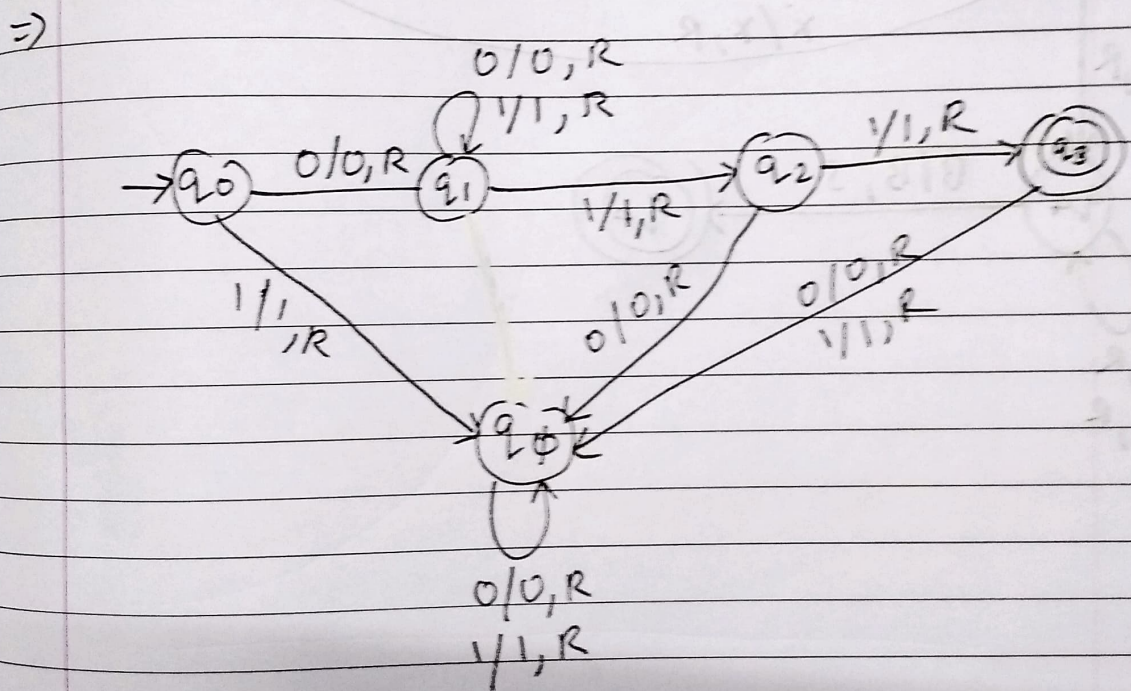 =)
0/0, R
1/1, R
q0
0/0, R
q1
1/1, R
q2
1/1, R
q3
1/1, R
0/0, R
0/0, R
1/1, R
qφ
0/0, R
1/1, R